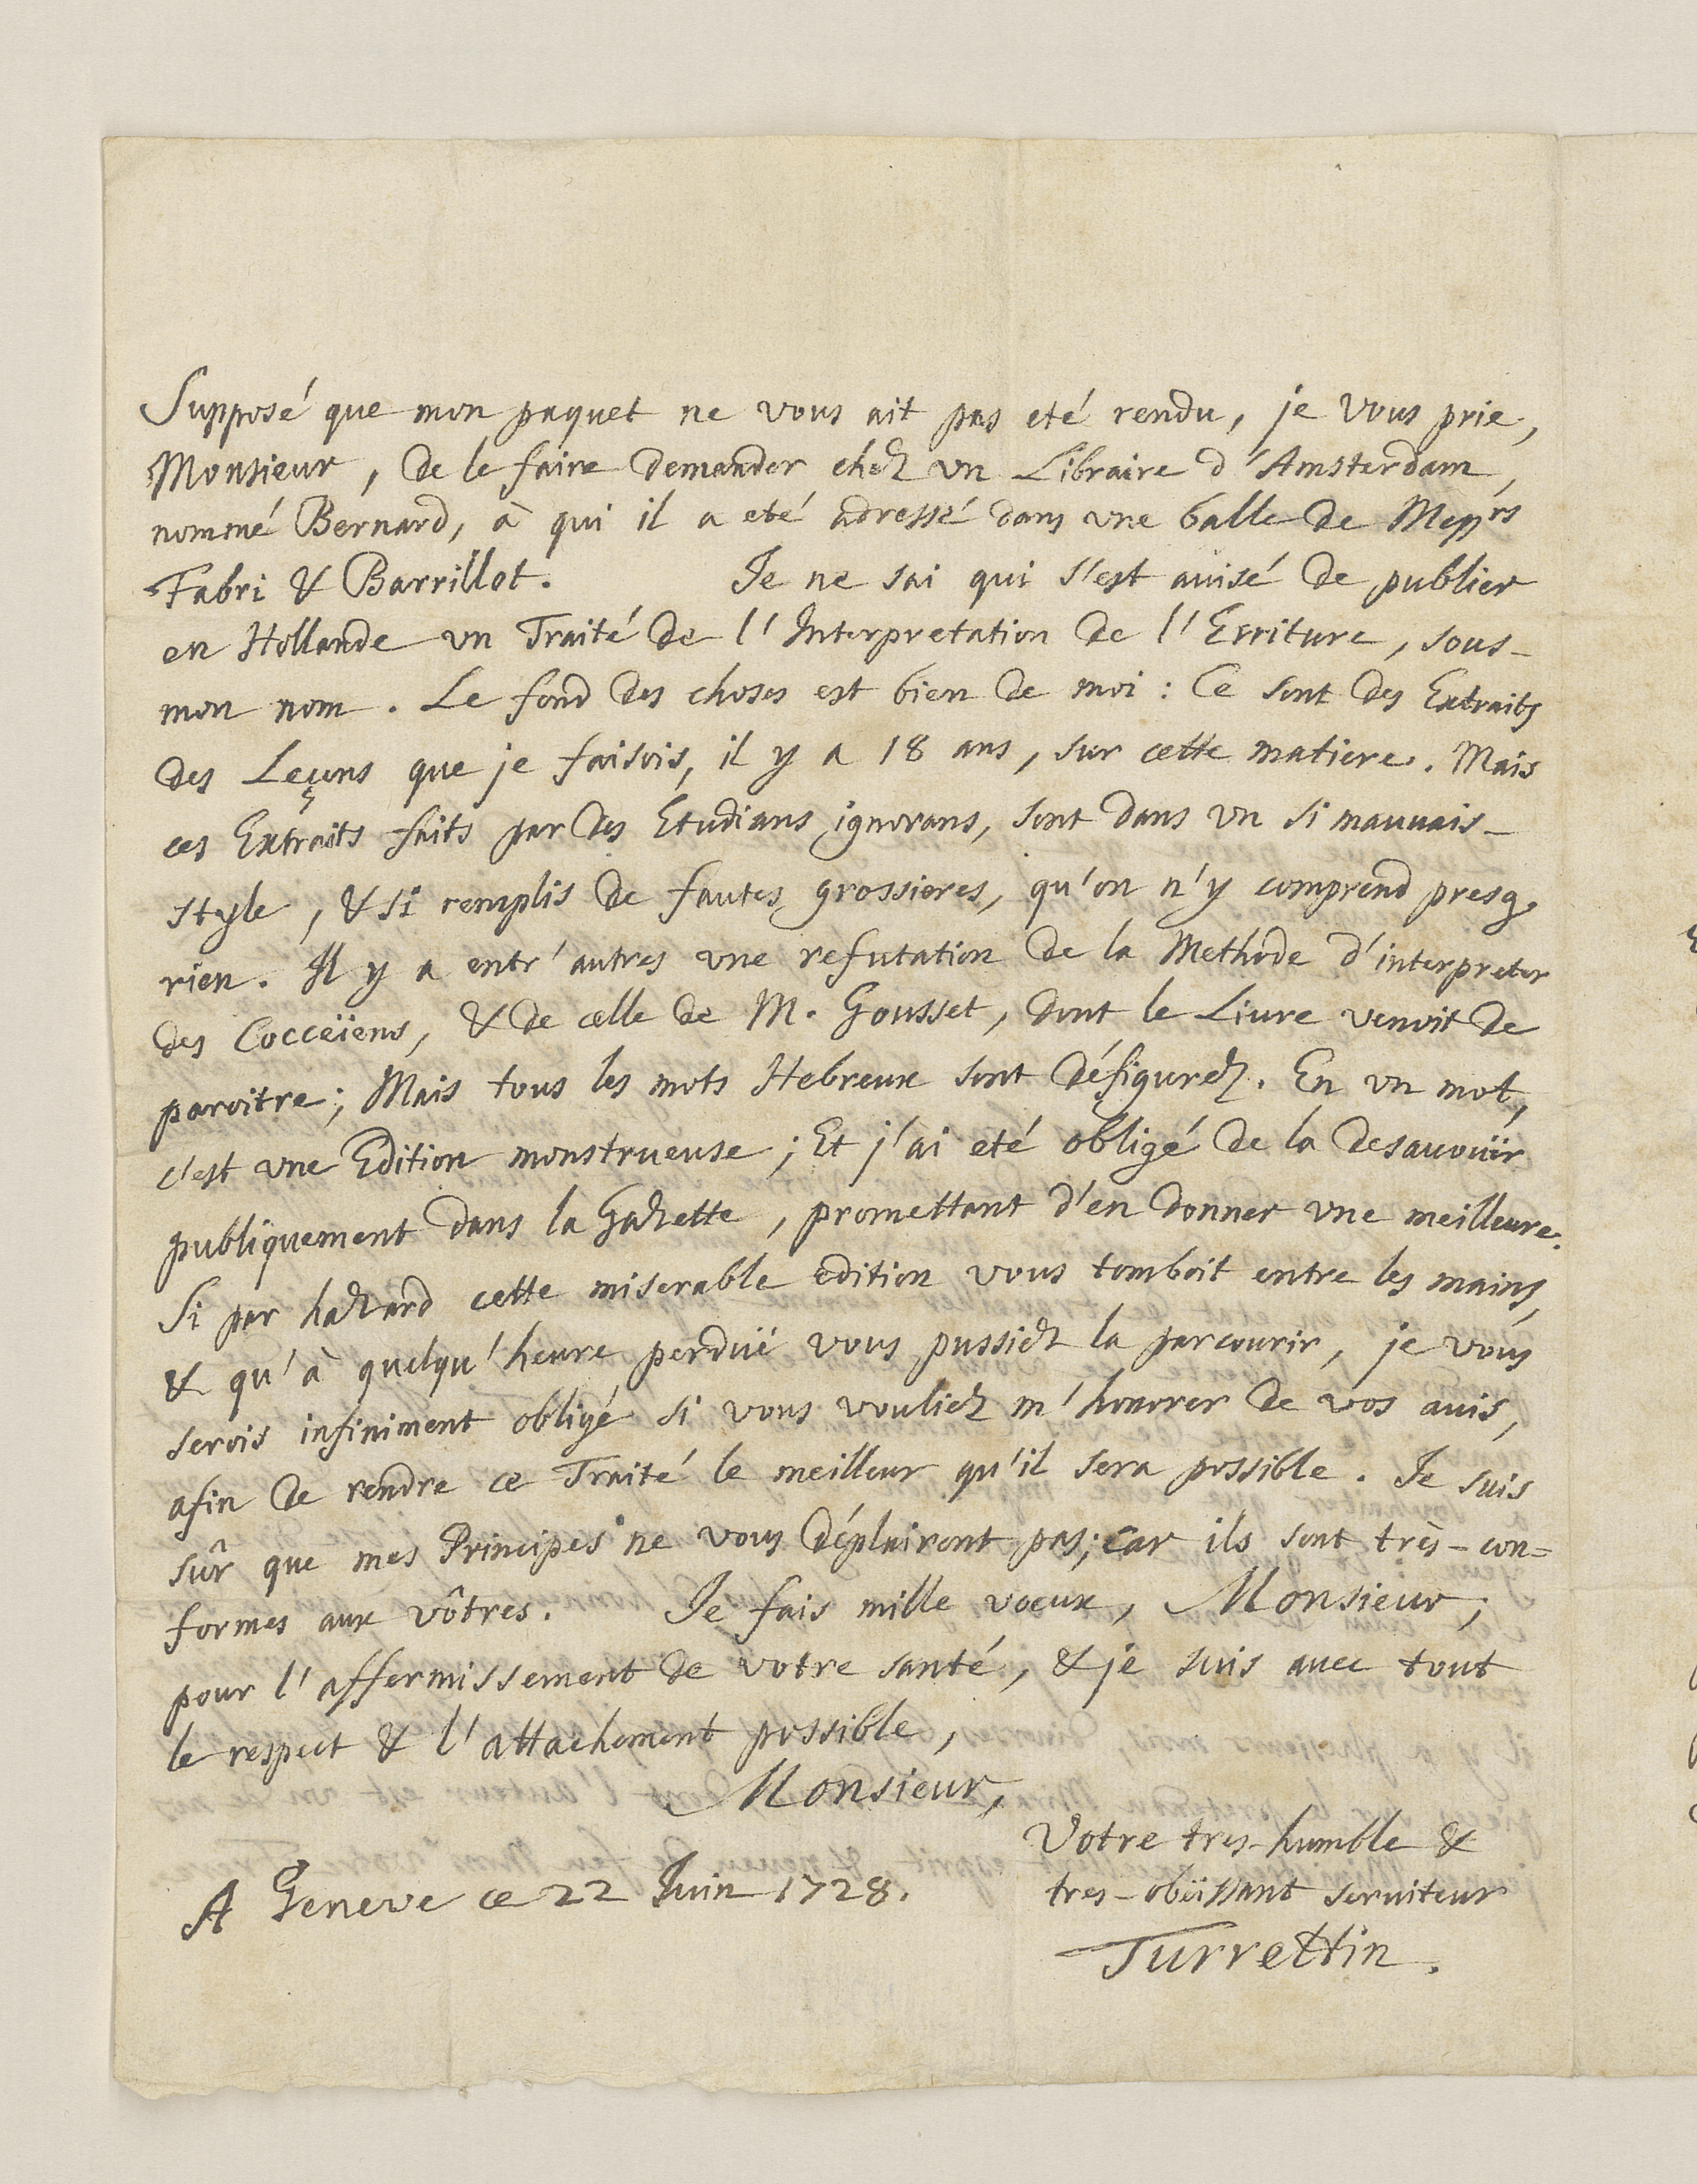 Supposé que mon paquet ne vous ait pas eté rendu, je vous prie,
Monsieur, de le faire demander chez un Libraire d'Amsterdam,
nommé Bernard, à qui il a eté adressé dans une balle de Messrs
Fabri & Barrillot. Je ne sai qui s'est avisé de publier
en Hollande un Traité de l'Interpretation de l'Ecriture, sous
mon nom. Le fond des choses est bien de moi: Ce sont des Extraits
des Leçons que je faisois, il y a 18 ans, sur cette matiere. Mais
ces Extraits faits par des Etudians ignorans, sont dans un si mauvais
style, & si remplis de fautes grossieres, qu'on n'y comprend presq.
rien. Il y a entr'autres une refutation de la Methode d'interpreter
des Cocceïens, & de celle de M. Gousset, dont le Livre venoit de
paroitre; Mais tous les mots Hebreux sont défigurez. En un mot,
c'est une Edition monstrueuse; Et j'ai eté obligé de la desavoüer
publiquement dans la Gazette, promettant d'en donner une meilleure.
Si par hazard cette miserable edition vous tomboit entre les mains,
& qu'à quelqu'heure perduë vous pussiez la parcourir, je vous
serois infiniment obligé si vous vouliez m'honorer de vos avis,
afin de rendre ce Traité le meilleur qu'il sera possible. Je suis
sûr que mes Principes ne vous déplairont pas; car ils sont très-con=
formes aux vôtres. Je fais mille voeux, Monsieur,
pour l'affermissement de votre santé, & je suis avec tout
le respect & l'attachement possible,
Monsieur,
Votre tres-humble &
tres-obëissant serviteur
Turrettin.
A Geneve ce 22 Juin 1728.